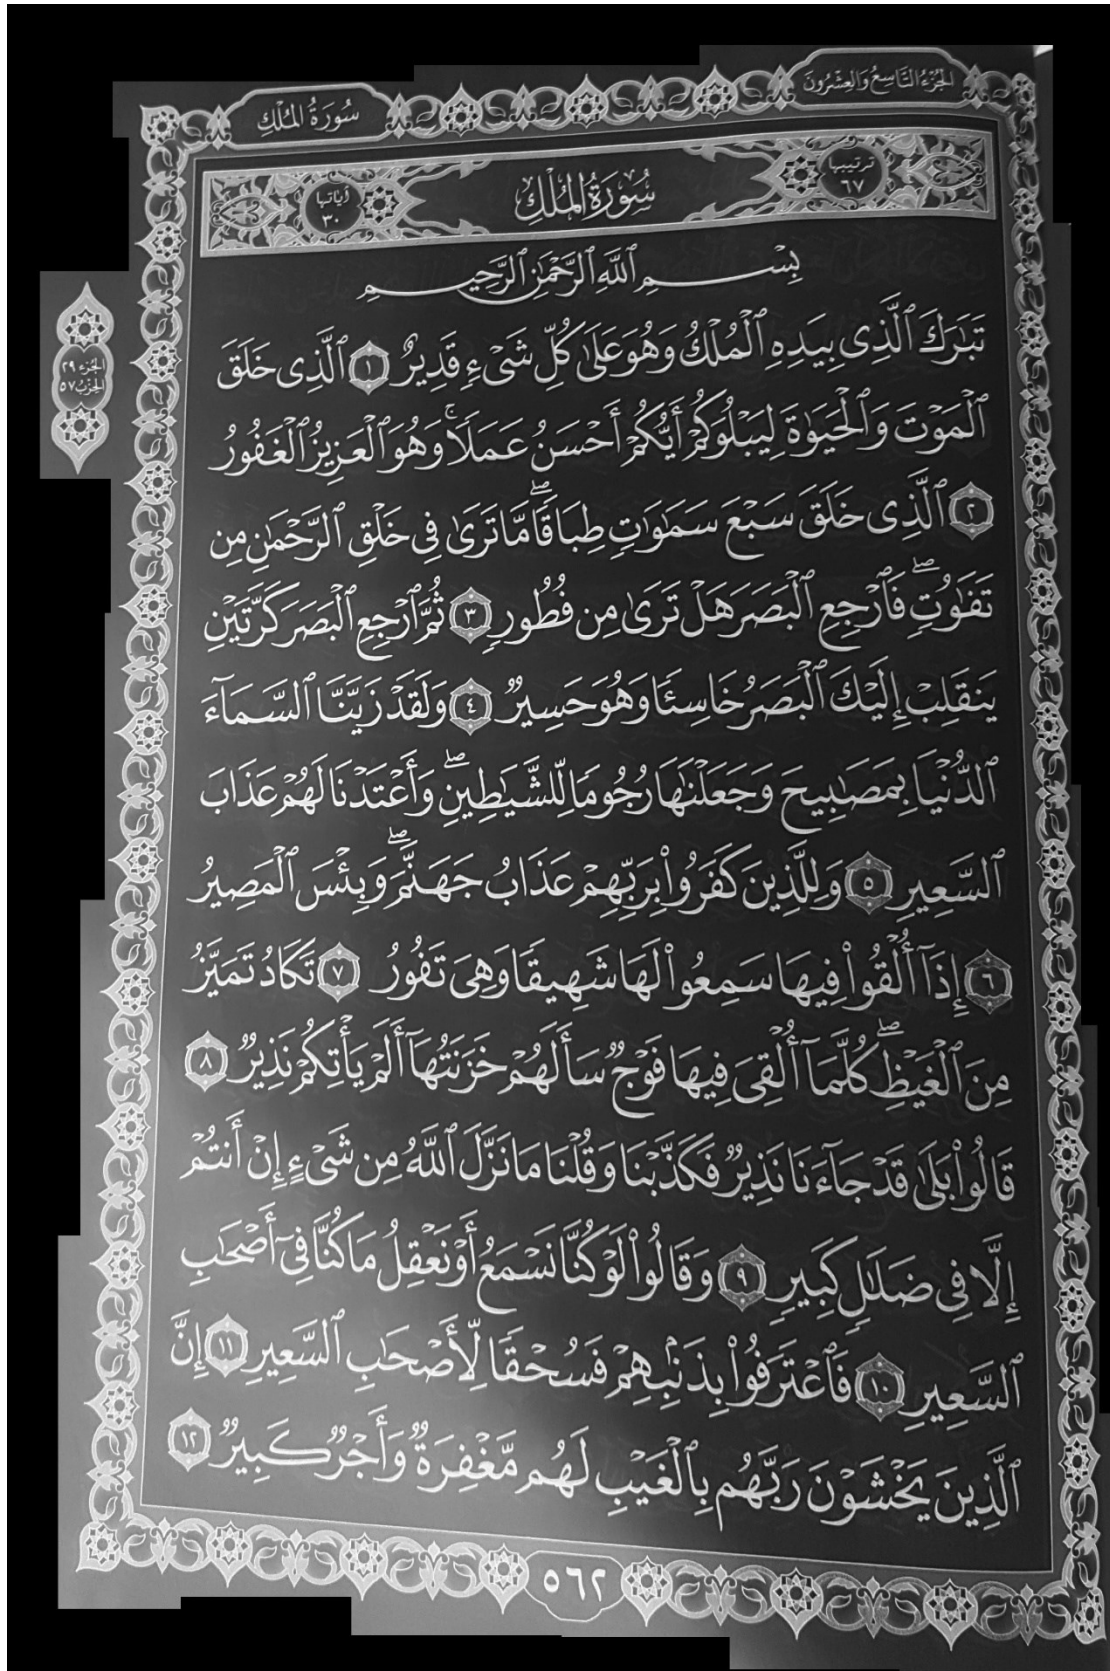 الجُزْءُ التَّاسِعُ وَالعِشْرُونَ
سُورَةُ المُلْكِ
ترتيبها ٦٧
سُورَةُ المُلْكِ
آياتها ٣٠
بِسْمِ ٱللَّهِ ٱلرَّحْمَٰنِ ٱلرَّحِيمِ
تَبَٰرَكَ ٱلَّذِى بِيَدِهِ ٱلْمُلْكُ وَهُوَ عَلَىٰ كُلِّ شَىْءٍ قَدِيرٌ ١ ٱلَّذِى خَلَقَ
ٱلْمَوْتَ وَٱلْحَيَوٰةَ لِيَبْلُوَكُمْ أَيُّكُمْ أَحْسَنُ عَمَلًا ۚ وَهُوَ ٱلْعَزِيزُ ٱلْغَفُورُ
٢ ٱلَّذِى خَلَقَ سَبْعَ سَمَٰوَٰتٍ طِبَاقًا ۖ مَّا تَرَىٰ فِى خَلْقِ ٱلرَّحْمَٰنِ مِن
تَفَٰوُتٍ ۖ فَٱرْجِعِ ٱلْبَصَرَ هَلْ تَرَىٰ مِن فُطُورٍ ٣ ثُمَّ ٱرْجِعِ ٱلْبَصَرَ كَرَّتَيْنِ
يَنقَلِبْ إِلَيْكَ ٱلْبَصَرُ خَاسِئًا وَهُوَ حَسِيرٌ ٤ وَلَقَدْ زَيَّنَّا ٱلسَّمَآءَ
ٱلدُّنْيَا بِمَصَٰبِيحَ وَجَعَلْنَٰهَا رُجُومًا لِّلشَّيَٰطِينِ ۖ وَأَعْتَدْنَا لَهُمْ عَذَابَ
ٱلسَّعِيرِ ٥ وَلِلَّذِينَ كَفَرُوا۟ بِرَبِّهِمْ عَذَابُ جَهَنَّمَ ۖ وَبِئْسَ ٱلْمَصِيرُ
٦ إِذَآ أُلْقُوا۟ فِيهَا سَمِعُوا۟ لَهَا شَهِيقًا وَهِىَ تَفُورُ ٧ تَكَادُ تَمَيَّزُ
مِنَ ٱلْغَيْظِ ۖ كُلَّمَآ أُلْقِىَ فِيهَا فَوْجٌ سَأَلَهُمْ خَزَنَتُهَآ أَلَمْ يَأْتِكُمْ نَذِيرٌ ٨
قَالُوا۟ بَلَىٰ قَدْ جَآءَنَا نَذِيرٌ فَكَذَّبْنَا وَقُلْنَا مَا نَزَّلَ ٱللَّهُ مِن شَىْءٍ إِنْ أَنتُمْ
إِلَّا فِى ضَلَٰلٍ كَبِيرٍ ٩ وَقَالُوا۟ لَوْ كُنَّا نَسْمَعُ أَوْ نَعْقِلُ مَا كُنَّا فِىٓ أَصْحَٰبِ
ٱلسَّعِيرِ ١٠ فَٱعْتَرَفُوا۟ بِذَنۢبِهِمْ فَسُحْقًا لِّأَصْحَٰبِ ٱلسَّعِيرِ ١١ إِنَّ
ٱلَّذِينَ يَخْشَوْنَ رَبَّهُم بِٱلْغَيْبِ لَهُم مَّغْفِرَةٌ وَأَجْرٌ كَبِيرٌ ١٢
الجُزْء ٢٩
الحِزْب ٥٧
٥٦٢